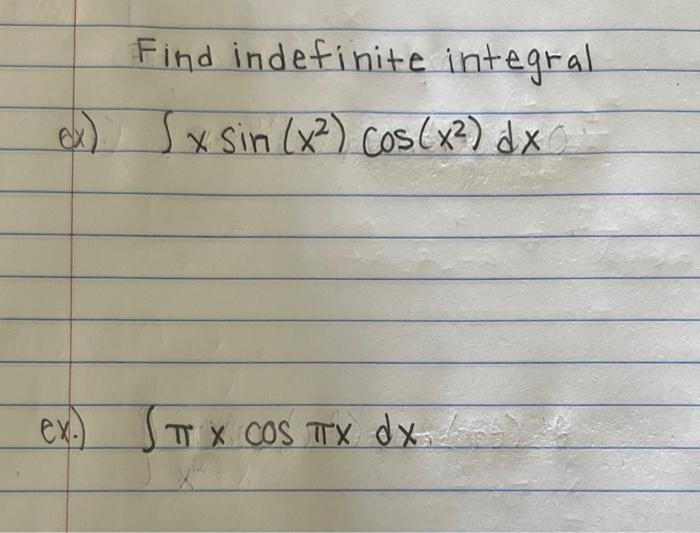 Find indefinite integral
ex) ∫ x sin (x²) cos(x²) dx
ex.) ∫ π x cos πx dx